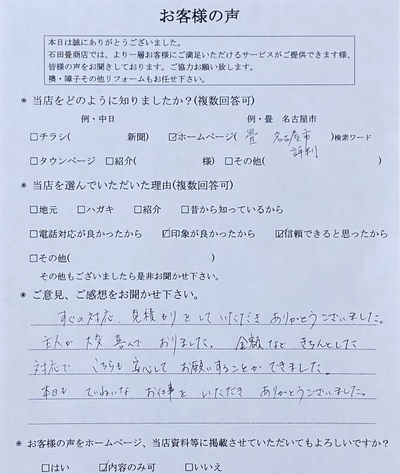 お客様の声
本日は誠にありがとうございました。
石田畳商店では、より一層お客様にご満足いただけるサービスがご提供できます様、
皆様の声をお聞きしております。ご協力お願い致します。
襖・障子その他リフォームもお任せ下さい。
◉ 当店をどのように知りましたか?(複数回答可)
例・中日 例・畳 名古屋市
□チラシ( 新聞) ☑ホームページ( 畳 名古屋市 )検索ワード
評判
□タウンページ □紹介( 様) □その他( )
◉ 当店を選んでいただいた理由(複数回答可)
□地元 □ハガキ □紹介 □昔から知っているから
□電話対応が良かったから ☑印象が良かったから ☑信頼できると思ったから
□その他( )
その他もございましたら是非お聞かせ下さい。
◉ ご意見、ご感想をお聞かせ下さい。
すぐの対応、見積りをしていただき ありがとうございました。
主人が 大変 喜んで おりました。 金額など きちんとした
対応で こちらも 安心して お願いすることができました。
本日も ていねいな お仕事を いただき ありがとうございました。
◉ お客様の声をホームページ、当店資料等に掲載させていただいてもよろしいですか?
□はい ☑内容のみ可 □いいえ